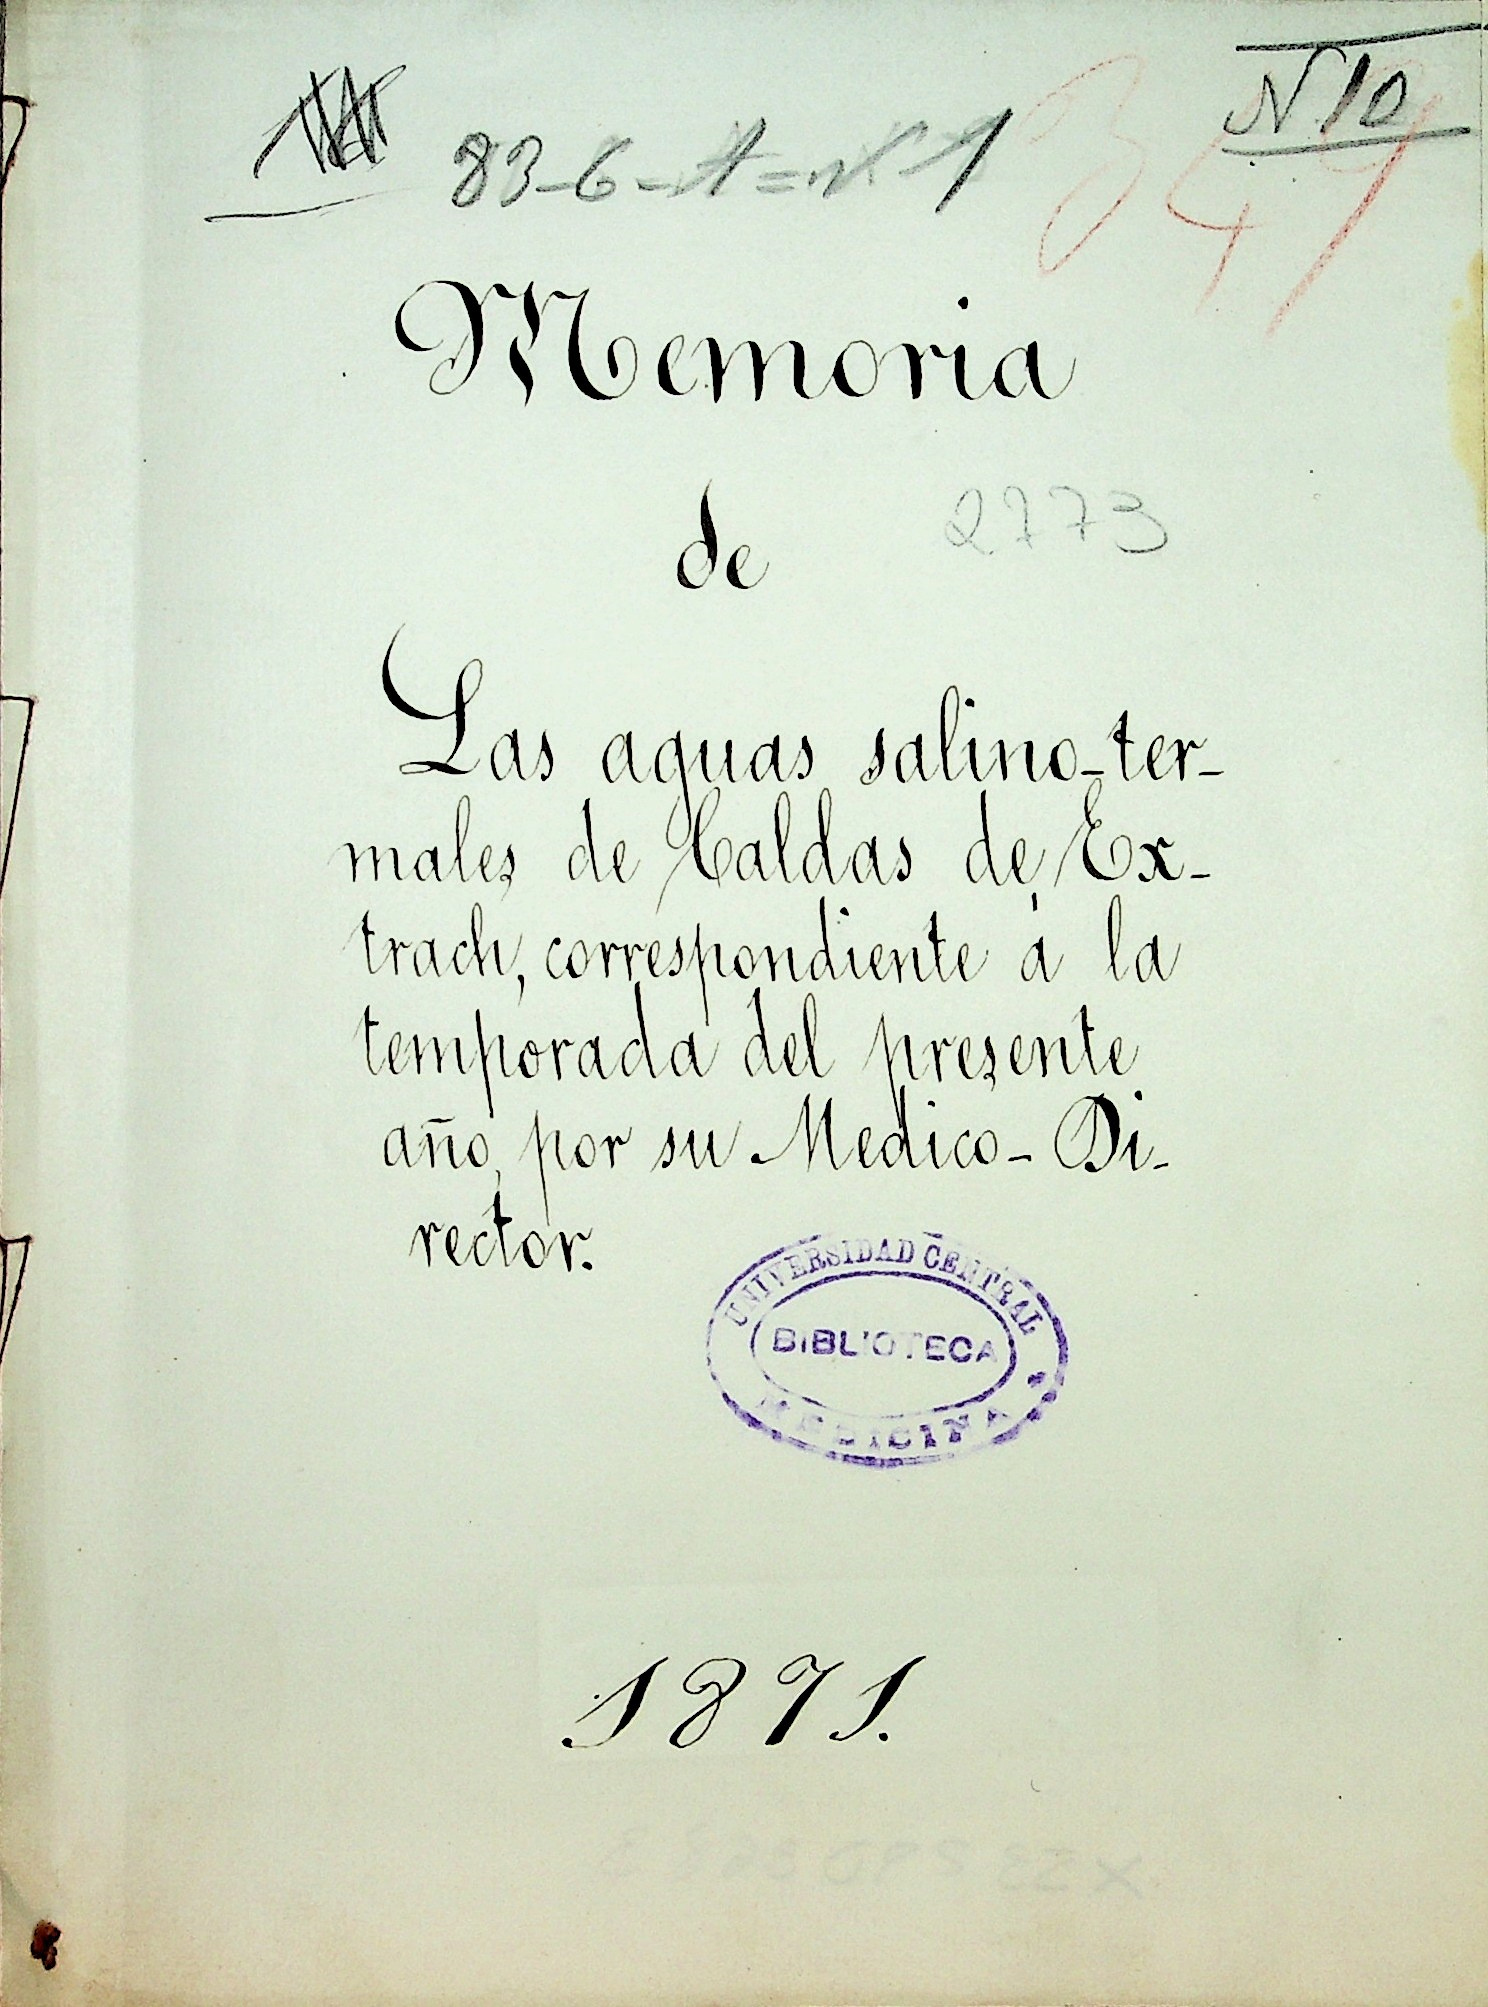 N 10
83-6-A=nº 1
347
Memoria
de
2773
Las aguas salino-ter-
males de Caldas de Ex-
trach, correspondiente á la
temporada del presente
año, por su Medico-Di-
rector.
UNIVERSIDAD CENTRAL
BIBLIOTECA
MEDICINA
1871.